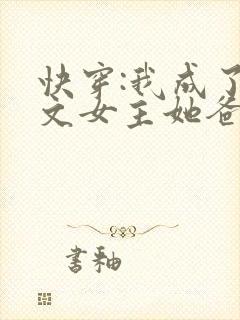 快穿:我成了
文女主她爸
書釉